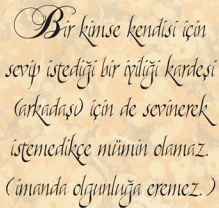 Bir kimse kendisi için
sevip istediği bir iyiliği kardeşi
(arkadaşı) için de sevinerek
istemedikçe mümin olamaz.
(imanda olgunluğa eremez.)